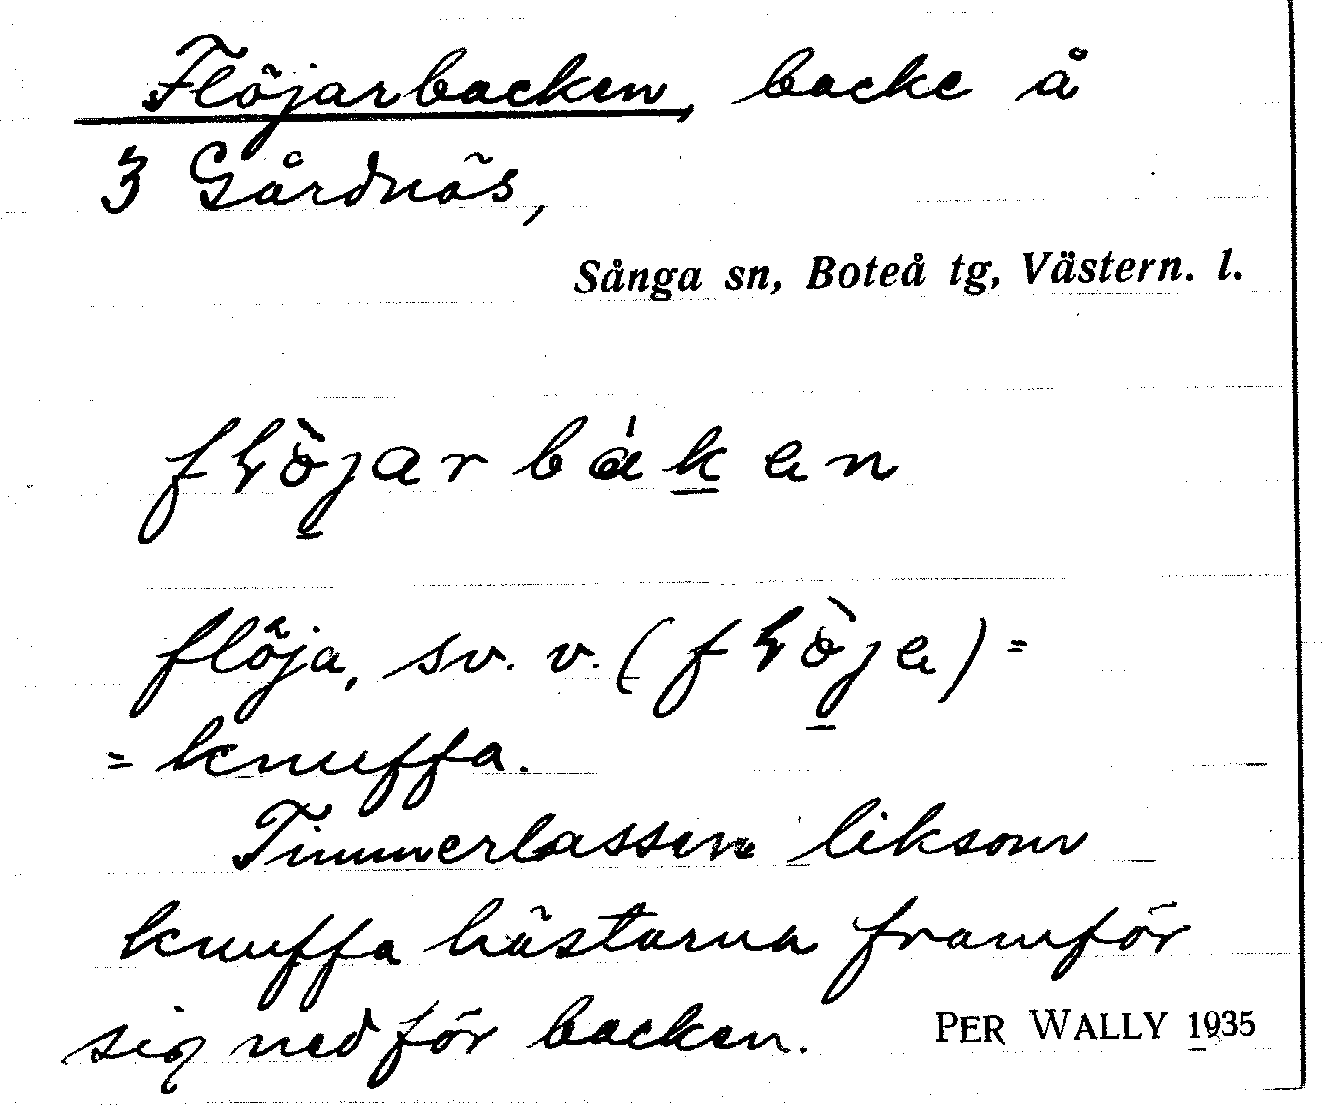 Flöjarbacken, backe å
3 Gårdnäs,
Sånga sn, Boteå tg, Västern. l.
flöjarbáken
flöja, sv. v. (flòja) =
= knuffa.
Timmerlassen liksom
knuffa hästarna framför
sig nedför backen.
PER WALLY 1935